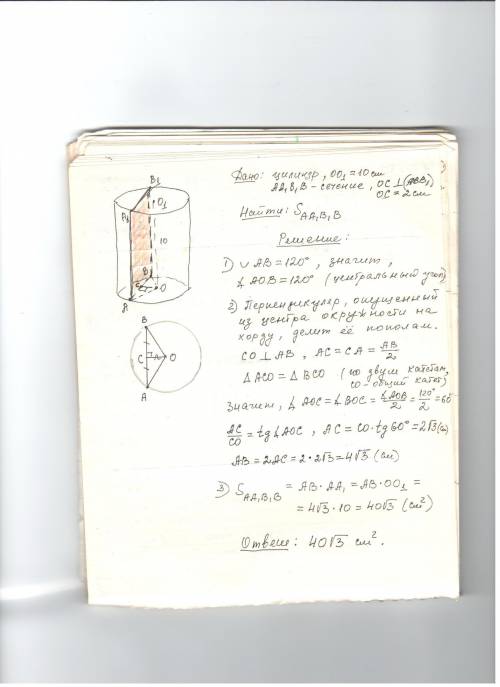 B₁
A₁
O₁
10
B
C
O
A
B
C
O
A
Дано: цилиндр, OO₁ = 10 см
AA₁B₁B - сечение, OC ⊥ (ABB₁)
OC = 2 см
Найти: S_AA₁B₁B
Решение:
1) ∪ AB = 120°, значит,
∡ AOB = 120° (центральный угол)
2) Перпендикуляр, опущенный
из центра окружности на
хорду, делит её пополам.
CO ⊥ AB, AC = CA = AB/2
△ ACO = △ BCO (по двум катетам,
CO - общий катет)
Значит, ∡ AOC = ∡ BOC = ∡AOB/2 = 120°/2 = 60
AC/CO = tg ∡ AOC, AC = CO·tg 60° = 2√3 (см)
AB = 2AC = 2·2√3 = 4√3 (см)
3) S_AA₁B₁B = AB·AA₁ = AB·OO₁ =
= 4√3·10 = 40√3 (см²)
Ответ: 40√3 см².